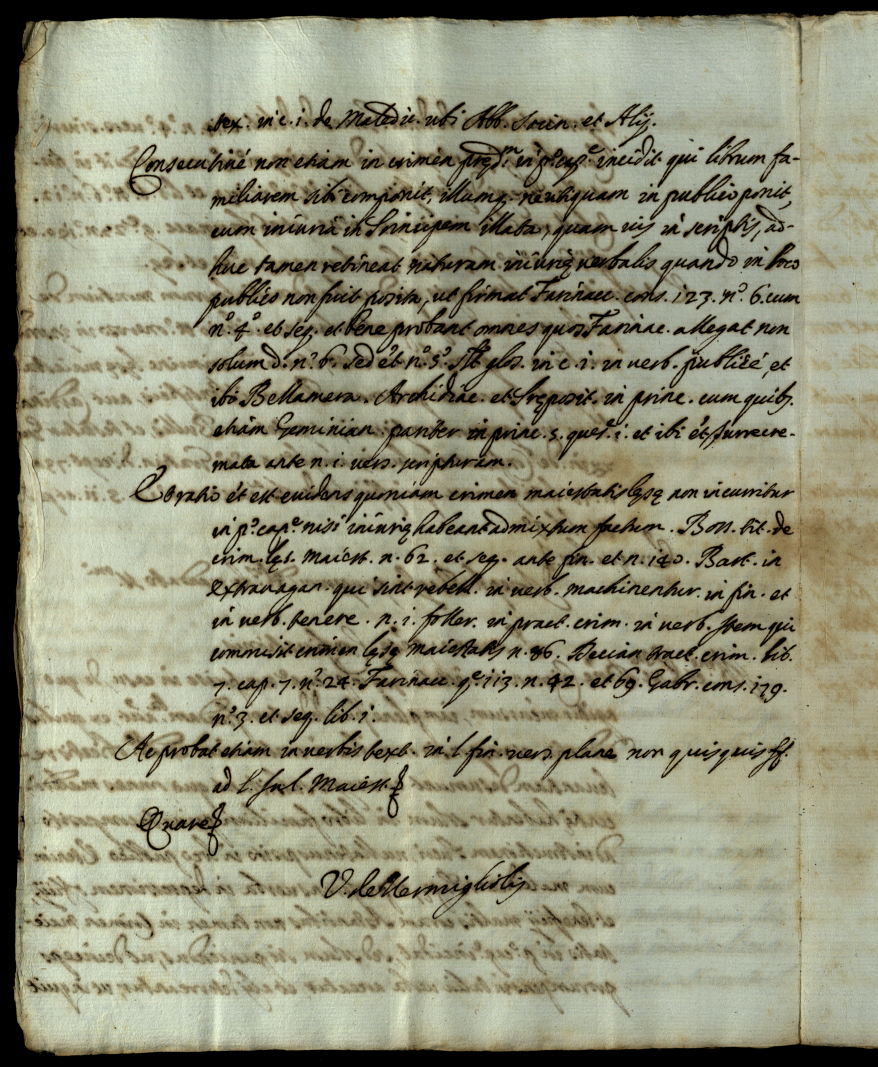 tex. in c. i. de Maledic. ubi Abb. Socin. et Alij.
Consecutiué non etiam in crimen pręd.m in p.o cap.e incidit qui librum fa-
miliarem sibi componit, illumq. neutiquam in publico ponit,
cum iniuria in Principem illata, quam uis in scriptis, ad-
huc tamen retineat naturam iniurię uerbalis quando in loco
publico non fuit posita, ut firmat Farinacc. cons. 123. n.o 6. cum
n.o 4.o et seq. et bene probant omnes quos Farinac. allegat non
solum d. n.o 6. sed et n.o 5.o glos. in c. i. in uerb. publicé, et
ibi Bellamera. Archidiac. et Pręposit. in princ. cum quib.
etiam Geminian. pariter in princ. 5. quęst. i. et ibi et Turrecre-
mata ante n. i. uers. scripturam.
Et ratio et est euidens quoniam crimen maiestatis lęsę non incurritur
in p.o cap.e nisi iniurię habeant admixtum factum. Boss. tit. de
crim. lęs. Maiest. n. 62. et seq. ante fin. et n. 140. Bart. in
extrauagan. qui sint rebell. in uerb. machinentur. in fin. et
in uerb. tenere. n. i. foller. in pract. crim. in uerb. Item qui
commisit crimen lęsę maiestatis n. 86. Decian. tract. crim. lib.
7. cap. 7. n.o 24. Farinacc. q.e 113. n. 42. et 69. Gabr. cons. 179.
n.o 3. et seq. lib. i.
Ac probat etiam in uerbis text. in l. fin. uers. plane non quisquis ff.
ad l. Jul. Maiest.
Quare
V. de Vermigliolis